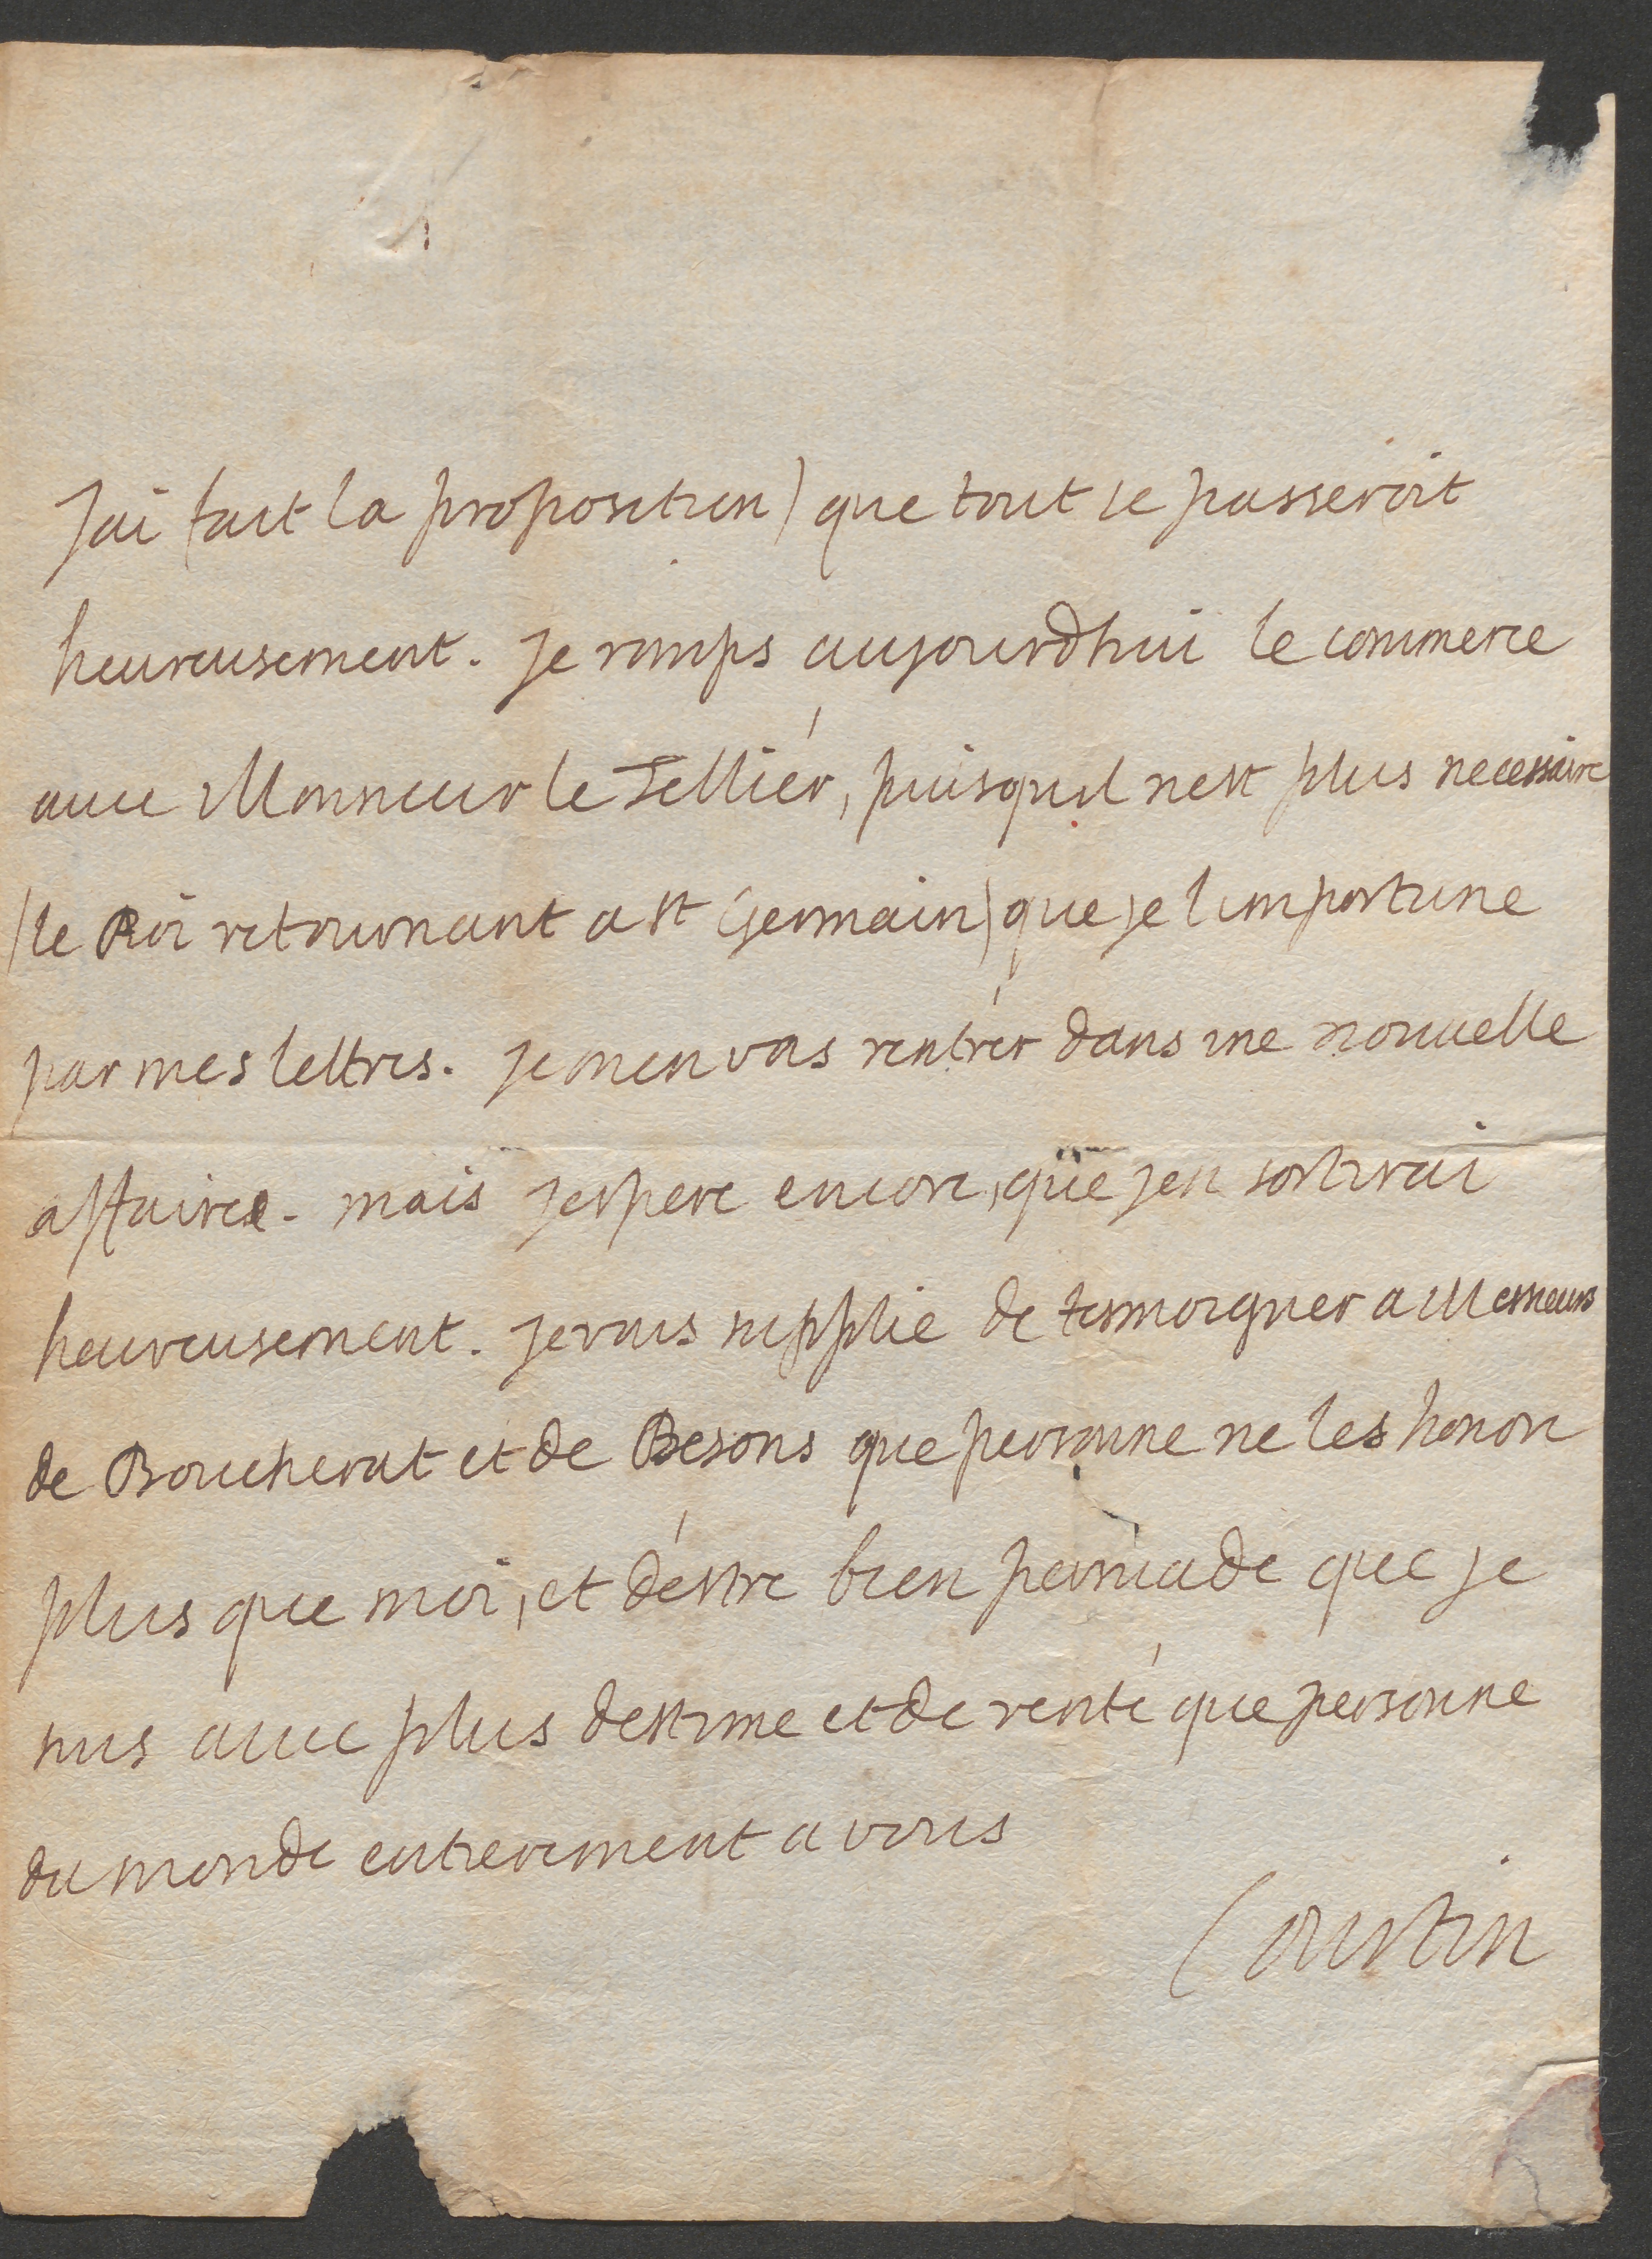 jai fait la proposition) que tout se passeroit
heureusement. Je romps aujourdhui le commerce
auec Monsieur le Tellier, puisquil nest plus necessaire
(le Roi retournant a st Germain) que je limportune
par mes lettres. je men vas rentrer dans une nouuelle
affaire. mais jespere encore, que jen sortirai
heureusement. je vous supplie de tesmoigner a Messieurs
de Boucherat et de Besons que personne ne les honore
plus que moi, et déstre bien persuadé que je
suis auec plus destime et de verité que personne
du monde entierement a vous
Courtin